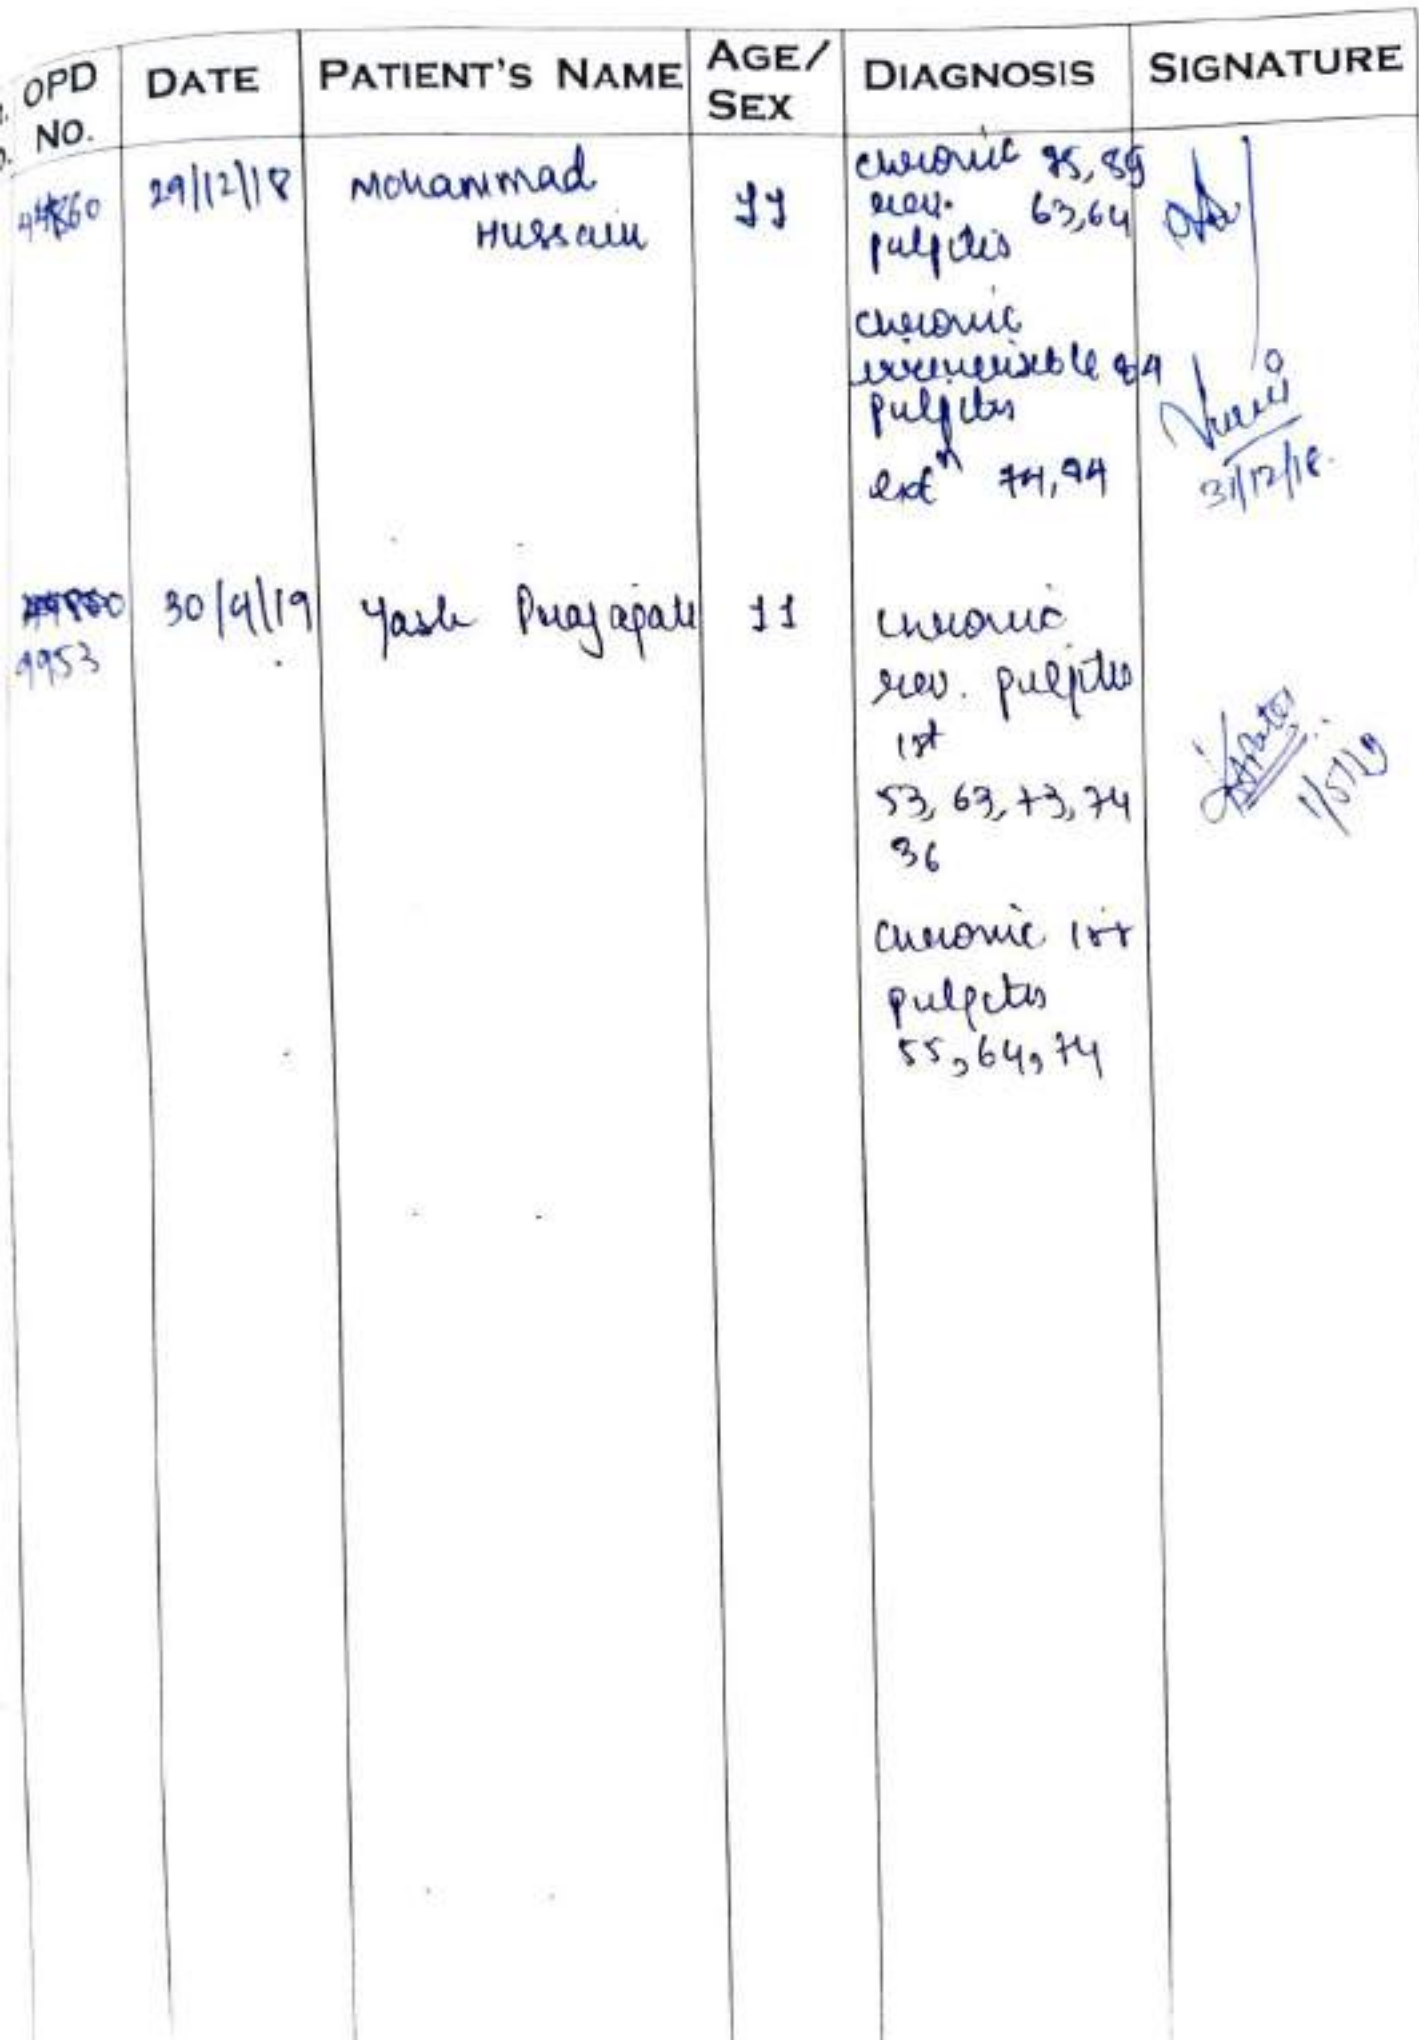 OPD NO. DATE PATIENT'S NAME AGE/SEX DIAGNOSIS SIGNATURE
29/12/18 Mohammad
Hussain
chronic 85,
rev. 63,64
pulpitis
chronic
irreversible 84
pulpitis
extn 74,
31/12/18.
9953 30/4/19 Yash Prajapati
chronic
rev. pulpitis
53, 63, 73, 74
36
chronic irr
pulpitis
55, 64, 74